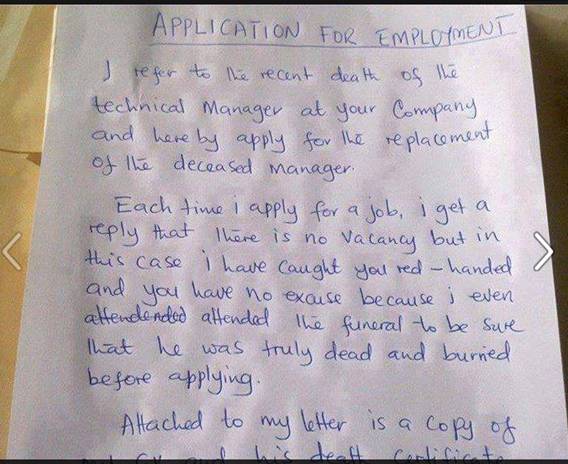 APPLICATION FOR EMPLOYMENT
I refer to the recent death of the
technical Manager at your Company
and here by apply for the replacement
of the deceased manager.
Each time i apply for a job, i get a
reply that there is no vacancy but in
this case i have caught you red-handed
and you have no excuse because i even
attendended attended the funeral to be sure
that he was truly dead and burried
before applying.
Attached to my letter is a copy of
my CV and his death Certificate